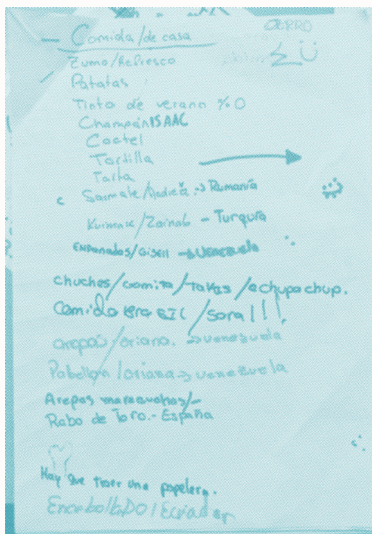 Comida/de casa
CERRO
Zumo/Refresco
Patatas
Tinto de verano %0
Champán ISAAC
Coctel
Tortilla
Tarta
Sarmale/Andreea → Rumanía
/Zainab - Turquía
Empanadas/Gisell → Venezuela
chuches/gomita/takis/achupachup.
Comida BIC/Sara!!!
arepas/oriana. → venezuela
Pabellon/oriana → venezuela
Arepas maracuchas/-
Rabo de Toro.- España
Hay que traer una papelera.
EncebollaDO/Ecuador